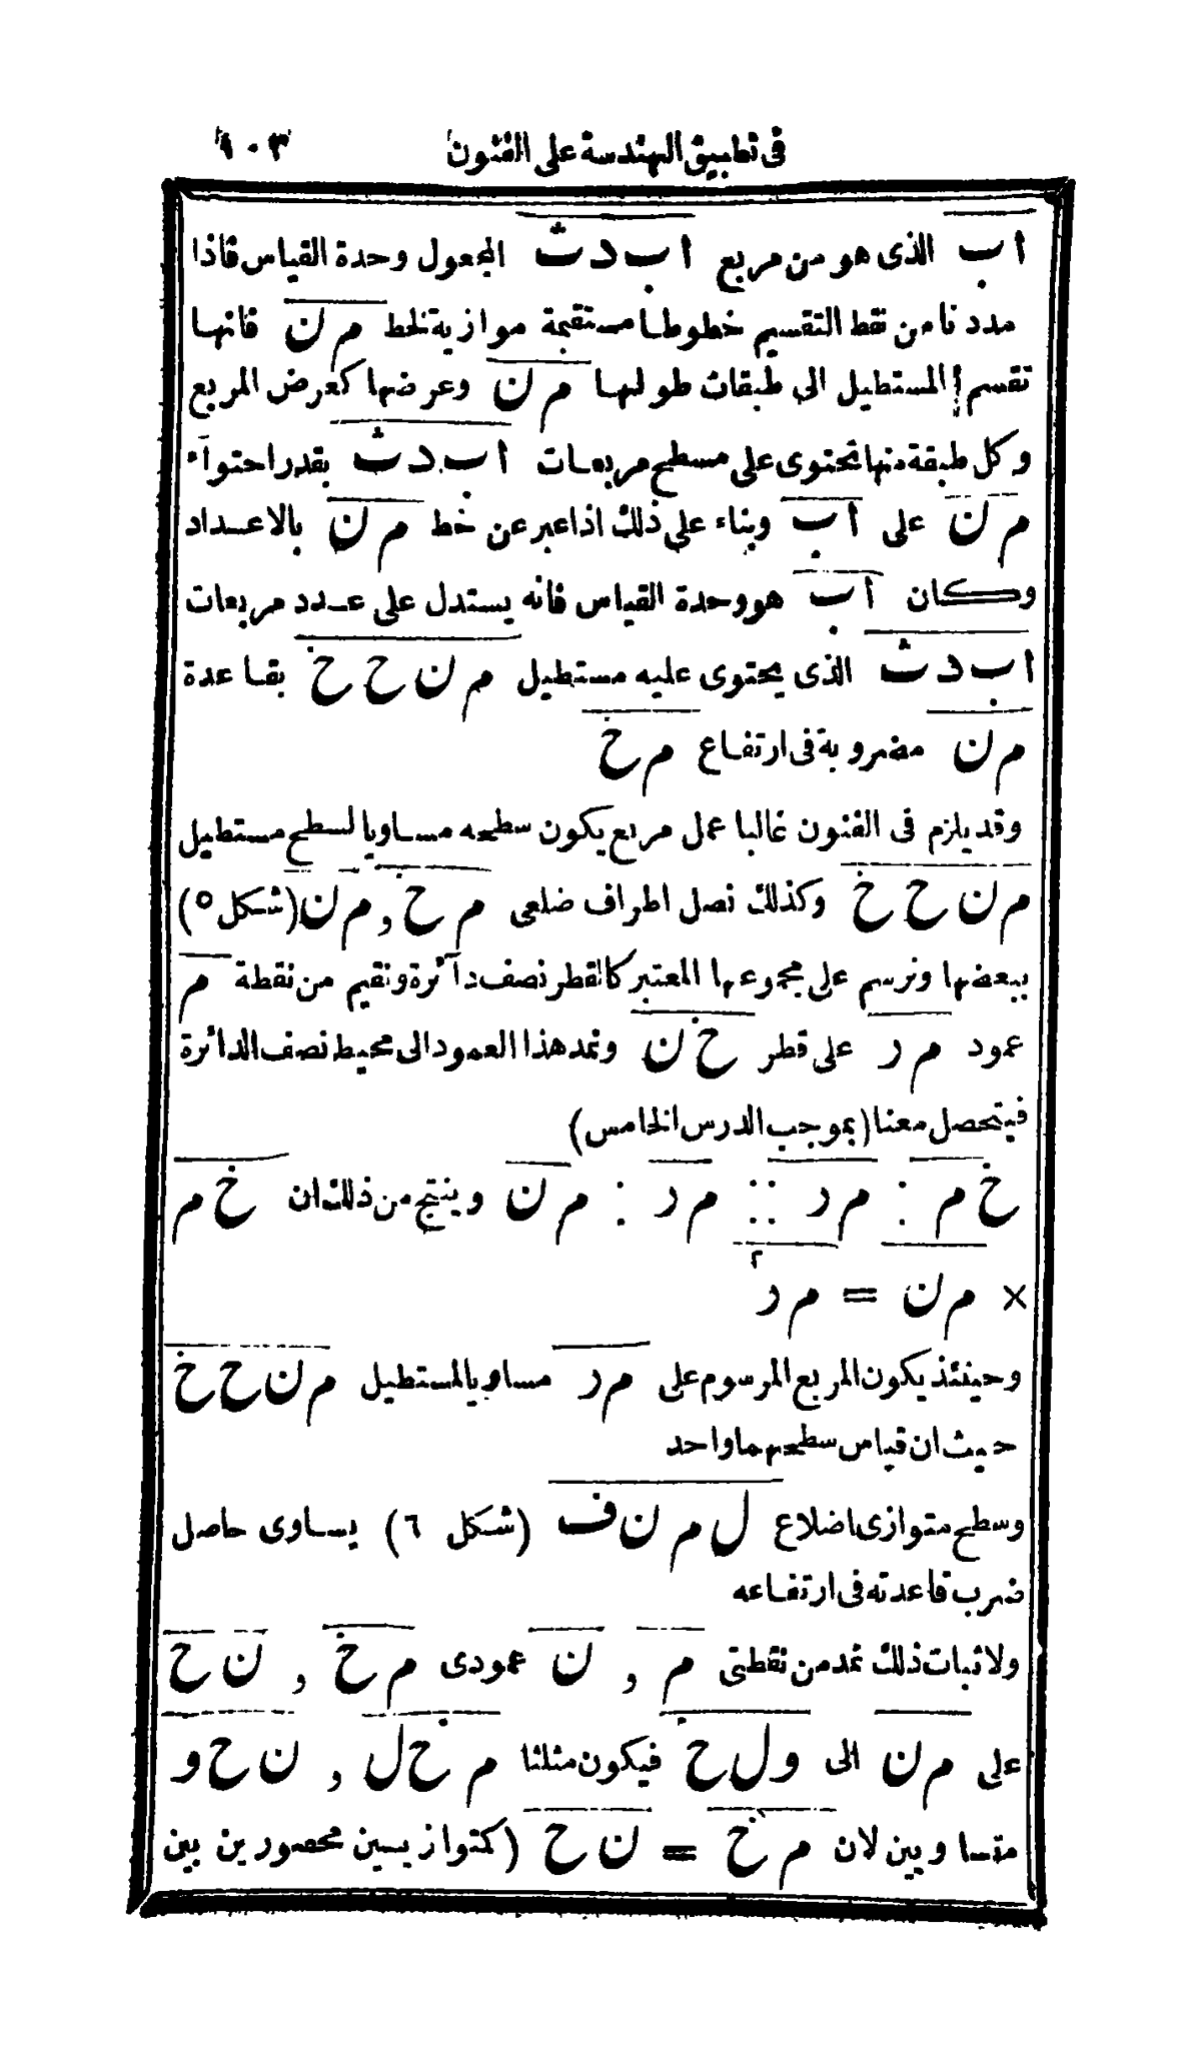 فى تطبيق الهندسة على الفنون ١٠٣
اب الذى هو من مربع اب دث المجعول وحدة القياس فاذا
مددنا من نقط التقسيم خطوطا مستقيمة موازية لخط م ن فانها
تقسم المستطيل الى طبقات طولها م ن وعرضها كعرض المربع
وكل طبقة منها تحتوى على مسطح مربعات اب دث بقدر احتوآء
م ن على اب وبناء على ذلك اذا عبر عن خط م ن بالاعداد
وكان اب هو وحدة القياس فانه يستدل على عدد مربعات
اب دث الذى يحتوى عليه مستطيل م ن ح خ بقاعدة
م ن مضروبة فى ارتفاع م خ
وقد يلزم فى الفنون غالبا عمل مربع يكون سطحه مساويا لسطح مستطيل
م ن ح خ وكذلك نصل اطراف ضلعى م خ , م ن (شكل ٥)
ببعضها ونرسم على مجموعها المعتبر كالقطر نصف دآئرة ونقيم من نقطة م
عمود م ر على قطر خ ن ونمد هذا العمود الى محيط نصف الدائرة
فيتحصل معنا (بموجب الدرس الخامس)
خ م : م ر :: م ر : م ن وينتج من ذلك ان خ م
× م ن = م ر٢
وحينئذ يكون المربع المرسوم على م ر مساويا لمستطيل م ن ح خ
حيث ان قياس سطحهما واحد
وسطح متوازى اضلاع ل م ن ف (شكل ٦) يساوى حاصل
ضرب قاعدته فى ارتفاعه
ولاثبات ذلك نمد من نقطتى م , ن عمودى م خ , ن ح
على م ن الى و ل خ فيكون مثلثا م خ ل , ن ح و
متساويين لان م خ = ن ح (كمتوازيين محصورين بين